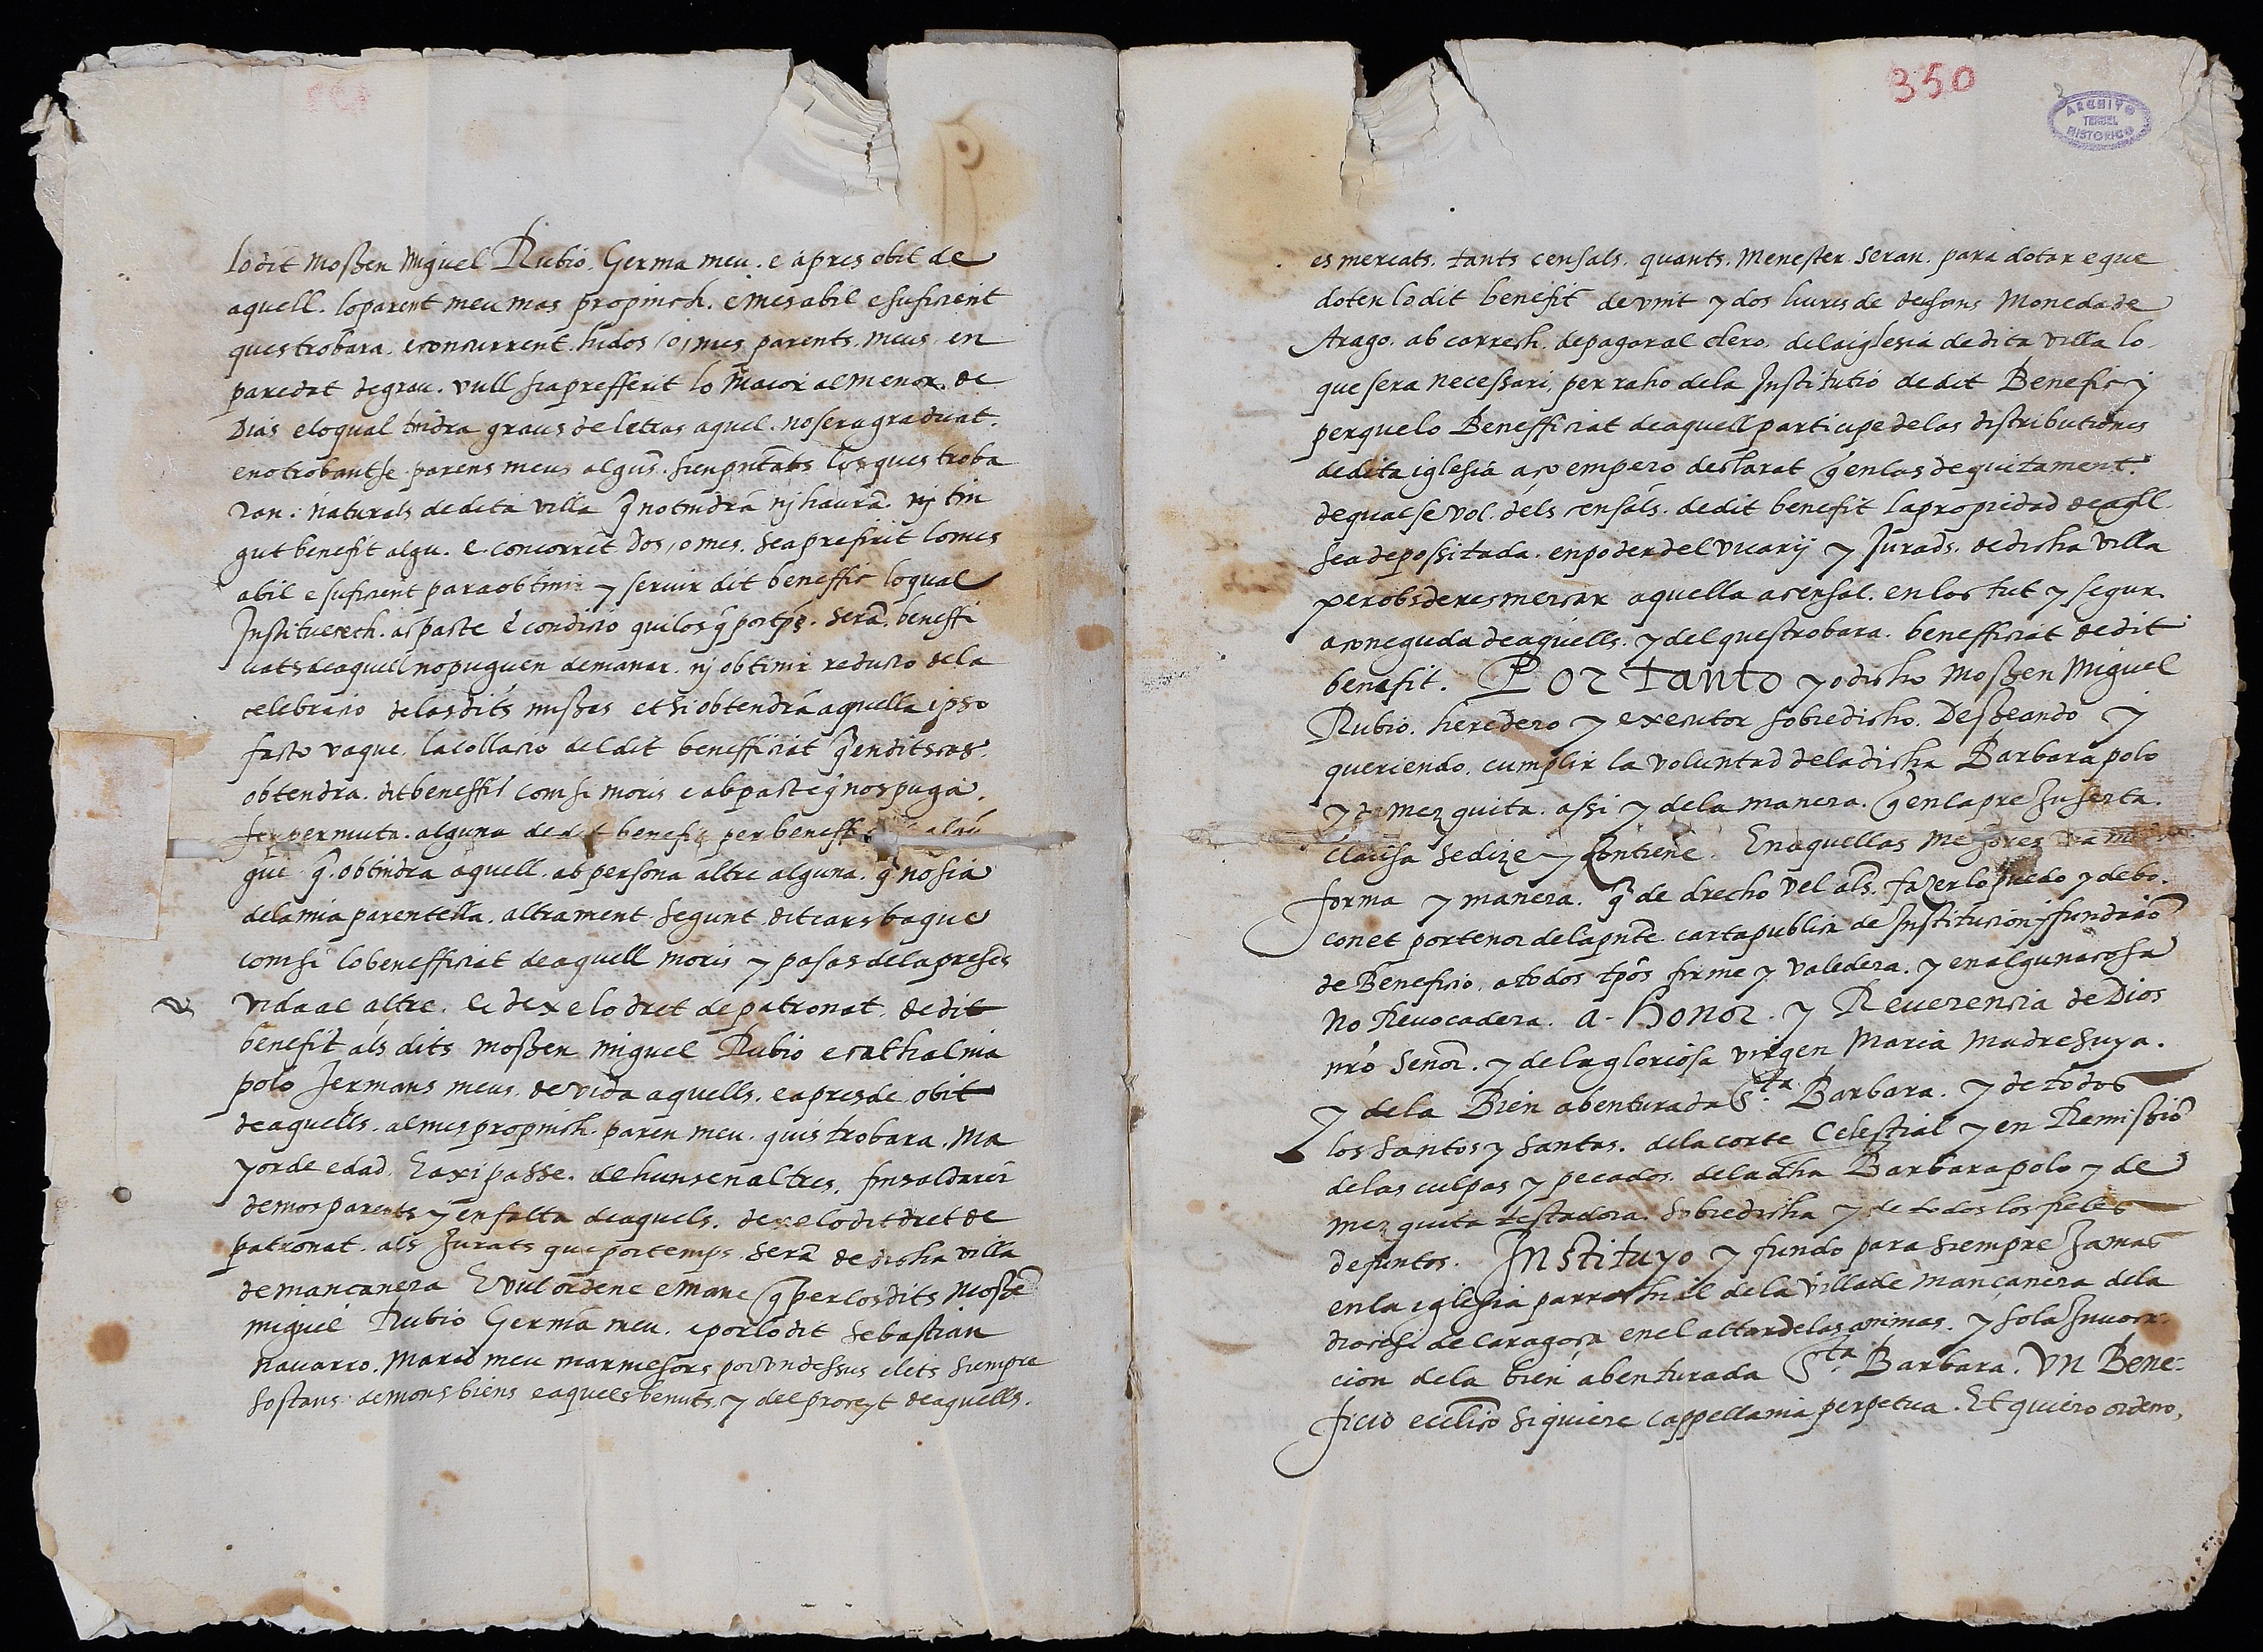 lodit Moßen Miguel Rubio. Germa meu. e apres obit de
aquell. loparent meu mas propinch. e mes abil e suficient
ques trobara. e concurrent. hu dos /o/ mes parents. meus. en
paredat de grau. vull sia prefferit lo maior al menor. de
Dias e loqual tindra graus de letras aquel. no sera graduat.
e no trobantse. parens meus algus. sien pñtats los ques troba
ran. naturals de dita villa q̃ no tindrã nj haurã. nj tin
gut benefit algu. e. concorrẽt Dos, o mes. sea preferit lo mes
abil e suficient para obtinir y servir dit beneffit loqual
Instituesch. ab paste e condicio qui los q̃ por tp̃s. serã. beneffi
ciats de aquell no puguen demanar. nj obtinir reductio de la
celebracio de las dits missas et si obtendrã aquella ipso
facto vaque. la collacio del dit benefficiat q̃ en dits cas
obtendra. dit beneffit com si moris e ab paste q̃ nos puga.
fer permuta. alguna de dit benefit per beneff algũ
que q̃. obtindra aquell. ab persona altre alguna. q̃ no sia
de la mia parentella. altrament. segunt dit cars baque
com si lo benefficiat de aquell moris y pasas de la present
vida al altre. E dexe lo dret de patronat. de dit
benefit als dits moßen miguel Rubio e cathalina
polo Jermans meus. de vida aquells. e apres de obit
de aquells. al mes propinch. paren meu. quis trobara. Ma
yor de edad. E axi passe. de huns en altres. fins al darer
de mos parents y en falta de aquels. dexe lo dit dret de
patronat. als Jurats que por temps. serã de dicha villa
de mancanera E vul ordene e mane q̃ per los dits Moßẽ
miguel Rubio Germã meu. e por lo dit Sebastian
navarro. Marit meu marmesors por vn dessus elets siempre
sostans. de mons biens e aquels benuts. y del proceyt de aquells.
350
ARCHIVO
TERUEL
HISTORICO
es mercats. tants censals. quants. Menester. seran. para dotar e que
doten lo dit benefit de vint y dos liures de desons Moneda de
Arago. ab carrech. de pagar al clero. de la iglesia de dita villa lo.
que sera necessari, per raho de la Institutio de dit Benefici
per que lo Benefficiat de aquell participe de las distributiones
de dita iglesia aco empero declarat q̃ en las de quitament.
de qual se vol. dels censals. de dit benefit la propiedad de aq̃ll.
sea depossitada. en poder del vicarij y Jurads. de dicha villa
per obs de resmersar aquella a censal. en loc tut y segur.
a coneguda de aquells. y del ques trobara. benefficiat de dit
benefit. Por tanto yo dicho Moßen Miguel
Rubio. heredero y executor sobredicho. Deßeando y
queriendo. cumplir la voluntad de la dicha Barbara polo
y de Mezquita. assi y de la manera. q̃ en la pre Inserta.
clausa se dize y contiene. En aquellas mejores
forma y manera. q̃ de drecho vel als. fazer lo puedo y debo.
con et por tenor de la pñte carta publica de Institucion y fundaciõ
de Beneficio. a todos tp̃os firme y valedera. y en alguna cosa
no Revocadera. a. Honor. y Reverencia de Dios
nr̃o señor. y de la gloriosa virgen Maria Madre suya.
y de la Bien abenturada S.ta Barbara. y de todos
los santos y santas. de la corte Celestial y en Remissiõ
de las culpas y pecados. de la dha Barbara polo y de
mezquita testadora. sobredicha y de todos los fieles
defuntos. Instituyo y fundo para siempre Jamas
en la iglesia parrochial de la villa de mancanera de la
diocesi de Caragoca en el altar de las animas. y sola Invoca-
cion de la bien abenturada S.ta Barbara. Vn Bene-
ficio eccl̃ico siquiere cappellania perpetua. Et quiero ordeno,